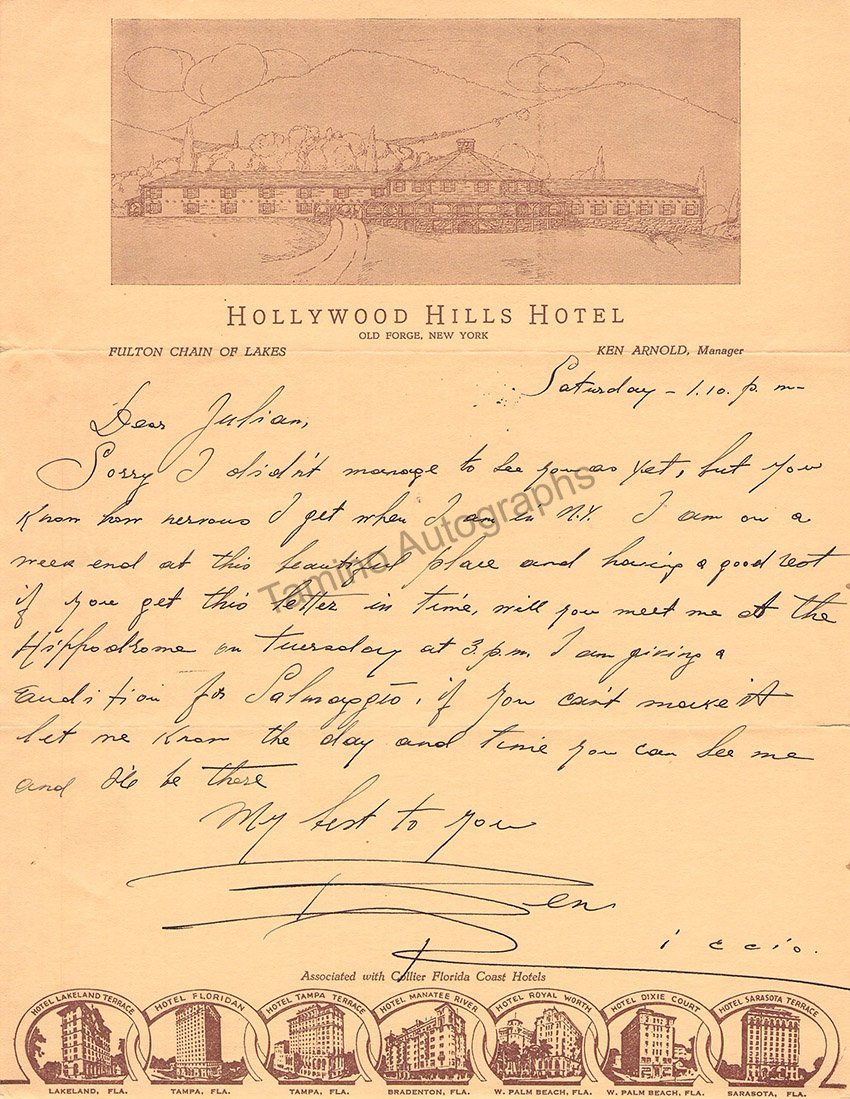 HOLLYWOOD HILLS HOTEL
OLD FORGE, NEW YORK
FULTON CHAIN OF LAKES
KEN ARNOLD, Manager
Saturday - 1.10. p. m-
Dear Julian,
Sorry I didn't manage to see you as yet, but you
know how nervous I get when I am in N.Y. I am on a
week end at this beautiful place and having a good rest
if you get this letter in time, will you meet me at the
Hippodrome on Tuersday at 3 p.m. I am giving a
audition for Salmaggio, if you can't make it
let me know the day and time you can see me
and I'll be there
My best to you
Ben
iccio.
Tamino Autographs
Associated with Collier Florida Coast Hotels
HOTEL LAKELAND TERRACE
LAKELAND, FLA.
HOTEL FLORIDAN
TAMPA, FLA.
HOTEL TAMPA TERRACE
TAMPA, FLA.
HOTEL MANATEE RIVER
BRADENTON, FLA.
HOTEL ROYAL WORTH
W. PALM BEACH, FLA.
HOTEL DIXIE COURT
W. PALM BEACH, FLA.
HOTEL SARASOTA TERRACE
SARASOTA, FLA.